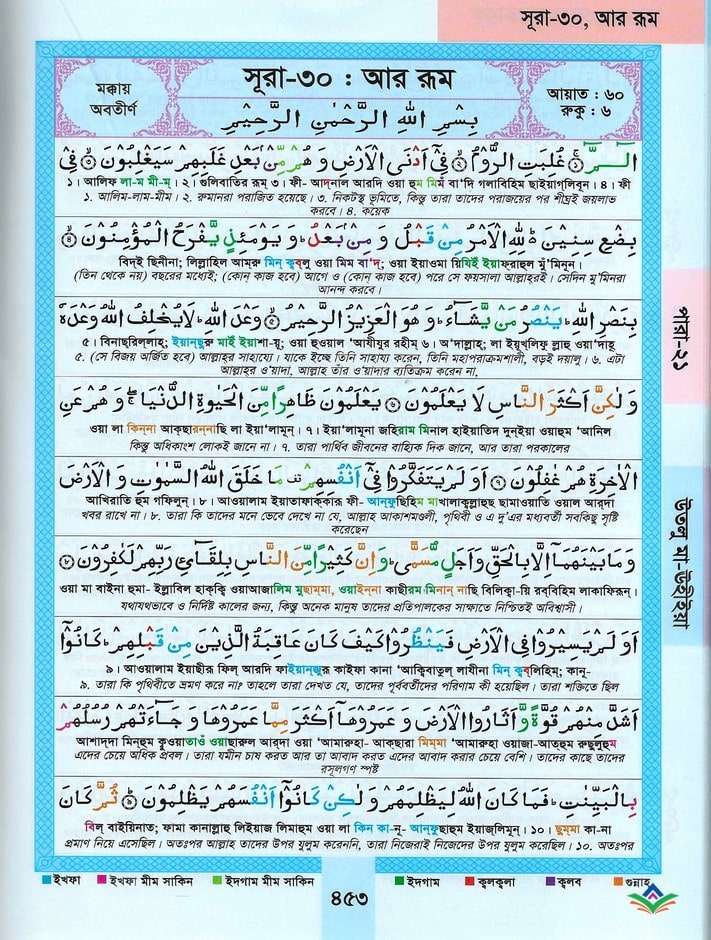 সূরা-৩০, আর রূম
মক্কায়
অবতীর্ণ
সূরা-৩০ : আর রূম
আয়াত : ৬০
রুকু : ৬
بِسْمِ اللّٰهِ الرَّحْمٰنِ الرَّحِيْمِ
الٓـمّٓ ۚ غُلِبَتِ الرُّوْمُ ۙ فِيْٓ اَدْنَى الْاَرْضِ وَهُمْ مِّنْۢ بَعْدِ غَلَبِهِمْ سَيَغْلِبُوْنَ ۙ فِيْ
১। আলিফ লা-ম মী-ম্। ২। গুলিবাতির রূম্ ৩। ফী- আদ্‌নাল আরদি ওয়া হুম মিম্ বা'দি গলাবিহিম ছাইয়াগ্‌লিবূন। ৪। ফী
১. আলিম-লাম-মীম। ২. রুমানরা পরাজিত হয়েছে। ৩. নিকটস্থ ভূমিতে, কিন্তু তারা তাদের পরাজয়ের পর শীঘ্রই জয়লাভ
করবে। ৪. কয়েক
بِضْعِ سِنِيْنَ ؕ لِلّٰهِ الْاَمْرُ مِنْ قَبْلُ وَ مِنْۢ بَعْدُ ؕ وَ يَوْمَئِذٍ يَّفْرَحُ الْمُؤْمِنُوْنَ ۙ
বিদ্ই ছিনীনা; লিল্লাহিল আম্‌রু মিন্ ক্ব্‌বলু ওয়া মিম বা'দ্; ওয়া ইয়াওমা য়িযিই ইয়াফরাহুল মু'মিনূন।
(তিন থেকে নয়) বছরের মধ্যেই; (কোন্ কাজ হবে) আগে ও (কোন্ কাজ হবে) পরে সে ফয়সালা আল্লাহ্‌রই। সেদিন মু'মিনরা
আনন্দ করবে।
بِنَصْرِ اللّٰهِ ؕ يَنْصُرُ مَنْ يَّشَآءُ ؕ وَ هُوَ الْعَزِيْزُ الرَّحِيْمُ ۙ وَعْدَ اللّٰهِ ؕ لَا يُخْلِفُ اللّٰهُ وَعْدَهٗ
৫। বিনাছরিল্লাহ; ইয়ান্‌ছুরু মাই ইয়াশা-য়ু; ওয়া হুওয়াল 'আযীযুর রহীম্ ৬। অ'দাল্লাহ; লা ইয়ুখ্‌লিফু ল্লাহু ওয়া'দাহূ
৫. (সে বিজয় অর্জিত হবে) আল্লাহ্‌র সাহায্যে। যাকে ইচ্ছে তিনি সাহায্য করেন, তিনি মহাপরাক্রমশালী, বড়ই দয়ালু। ৬. এটা
আল্লাহ্‌র ও'য়াদা, আল্লাহ্ তাঁর ও'য়াদার ব্যতিক্রম করেন না,
وَ لٰكِنَّ اَكْثَرَ النَّاسِ لَا يَعْلَمُوْنَ ۙ يَعْلَمُوْنَ ظَاهِرًا مِّنَ الْحَيٰوةِ الدُّنْيَا ۖۚ وَ هُمْ عَنِ
ওয়া লা কিন্‌না আক্‌ছারন্‌না-ছি লা ইয়া'লামূন্। ৭। ইয়া'লামূনা জহিরাম মিনাল হাইয়াতিদ দুন্‌ইয়া ওয়াহুম 'আনিল
কিন্তু অধিকাংশ লোকই জানে না। ৭. তারা পার্থিব জীবনের বাহ্যিক দিক জানে, আর তারা পরকালের
الْاٰخِرَةِ هُمْ غٰفِلُوْنَ ۙ اَوَ لَمْ يَتَفَكَّرُوْا فِيْٓ اَنْفُسِهِمْ قف مَا خَلَقَ اللّٰهُ السَّمٰوٰتِ وَ الْاَرْضَ
আখিরাতি হুম গফিলূন্। ৮। আওয়ালাম ইয়াতাফাক্কারূ ফী- আন্‌ফুছিহিম মা খালাকুল্লাহুছ ছামাওয়াতি ওয়াল আর্‌দা
খবর রাখে না। ৮. তারা কি তাদের মনে ভেবে দেখে না যে, আল্লাহ আকাশমণ্ডলী, পৃথিবী ও এ দু'এর মধ্যবর্তী সবকিছু সৃষ্টি
করেছেন
وَ مَا بَيْنَهُمَآ اِلَّا بِالْحَقِّ وَ اَجَلٍ مُّسَمًّى ؕ وَ اِنَّ كَثِيْرًا مِّنَ النَّاسِ بِلِقَآئِ رَبِّهِمْ لَكٰفِرُوْنَ
ওয়া মা বাইনা হুমা- ইল্লাবিল হাক্কি ওয়াআজালিম মুছাম্মা, ওয়াইন্‌না কাছীরাম মিনান্ না়ছি বিলিক্বা-য়ি রব্বিহিম লাকাফিরূন্।
যথাযথভাবে ও নির্দিষ্ট কালের জন্য, কিন্তু অনেক মানুষ তাদের প্রতিপালকের সাক্ষাতে নিশ্চিতই অবিশ্বাসী।
اَوَ لَمْ يَسِيْرُوْا فِي الْاَرْضِ فَيَنْظُرُوْا كَيْفَ كَانَ عَاقِبَةُ الَّذِيْنَ مِنْ قَبْلِهِمْ ؕ كَانُوْٓا
৯। আওয়ালাম ইয়াছীরূ ফিল্ আরদি ফাইয়ান্‌জুরূ কাইফা কানা 'আক্বিবাতুল লাযীনা মিন্ ক্ব্‌বলিহিম; কানূ-
৯. তারা কি পৃথিবীতে ভ্রমণ করে না? তাহলে তারা দেখত যে, তাদের পূর্ববর্তীদের পরিণাম কী হয়েছিল। তারা শক্তিতে ছিল
اَشَدَّ مِنْهُمْ قُوَّةً وَّ اَثَارُوا الْاَرْضَ وَ عَمَرُوْهَآ اَكْثَرَ مِمَّا عَمَرُوْهَا وَ جَآءَتْهُمْ رُسُلُهُمْ
আশাদ্দা মিন্‌হুম কুওয়াতাওঁ ওয়াছারুল আর্‌দা ওয়া 'আমারুহা- আক্‌ছারা মিম্‌মা 'আমারুহা ওয়াজা-আত্‌হুম রুছুলুহুম
এদের চেয়ে অধিক প্রবল। তারা যমীন চাষ করত আর তা আবাদ করত এদের আবাদ করার চেয়ে বেশি। তাদের কাছে তাদের
রসূলগণ স্পষ্ট
بِالْبَيِّنٰتِ ؕ فَمَا كَانَ اللّٰهُ لِيَظْلِمَهُمْ وَ لٰكِنْ كَانُوْٓا اَنْفُسَهُمْ يَظْلِمُوْنَ ؕ ثُمَّ كَانَ
বিল্ বাইয়িনাত; ফামা কানাল্লাহু লিইয়াজ লিমাহুম ওয়া লা কিন কা-নূ- আন্‌ফুছাহুম ইয়াজলিমূন্। ১০। ছুম্‌মা কা-না
প্রমাণ নিয়ে এসেছিল। অতঃপর আল্লাহ তাদের উপর যুলুম করেননি, তারা নিজেরাই নিজেদের উপর যুলুম করেছিল। ১০. অতঃপর
পারা-২১
উতলু মা-উহিইয়া
ইখফা ইখফা মীম সাকিন ইদগাম মীম সাকিন ইদগাম কুলকুলা কুলব গুন্নাহ
৪৫৩